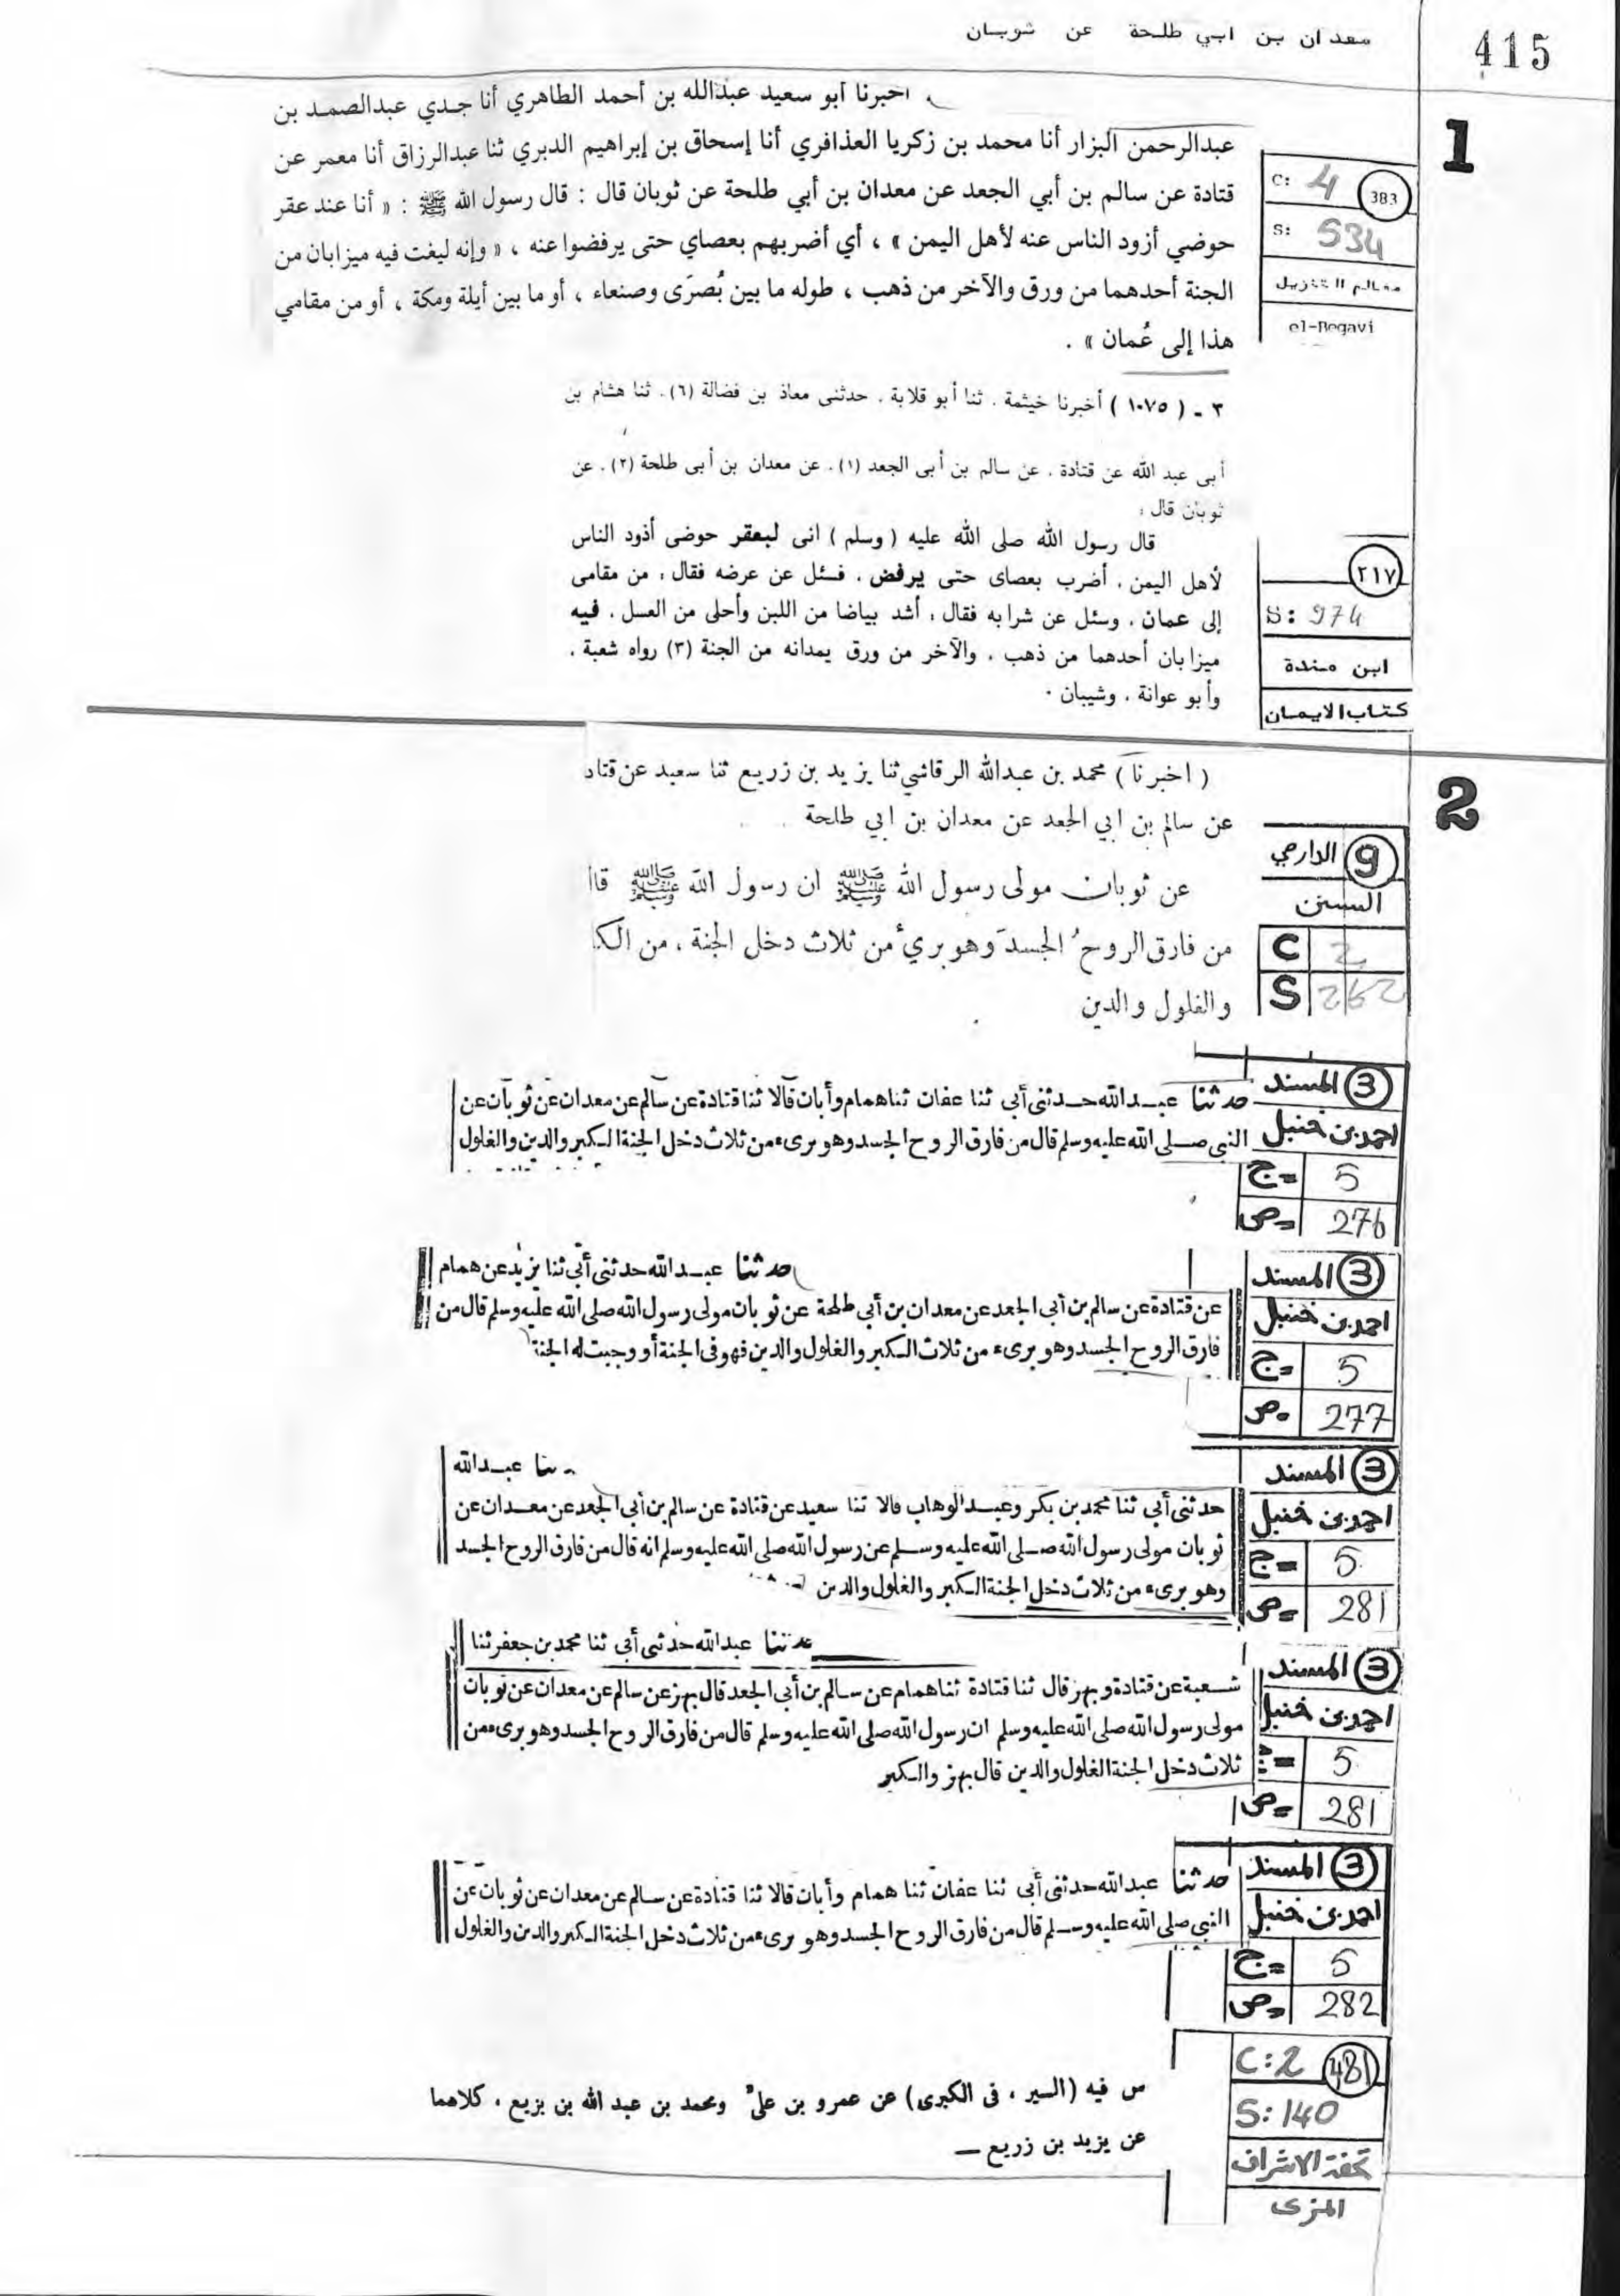 معدان بن ابي طلحة عن ثوبان
415
1
اخبرنا أبو سعيد عبدالله بن أحمد الطاهري أنا جدي عبدالصمد بن
عبدالرحمن البزار أنا محمد بن زكريا العذافري أنا إسحاق بن إبراهيم الدبري ثنا عبدالرزاق أنا معمر عن
قتادة عن سالم بن أبي الجعد عن معدان بن أبي طلحة عن ثوبان قال : قال رسول الله ﷺ : « أنا عند عقر
حوضي أزود الناس عنه لأهل اليمن » ، أي أضربهم بعصاي حتى يرفضوا عنه ، « وإنه ليغت فيه ميزابان من
الجنة أحدهما من ورق والآخر من ذهب ، طوله ما بين بُصرَى وصنعاء ، أو ما بين أيلة ومكة ، أو من مقامي
هذا إلى عُمان » .
C: 4 383
S: 534
معالم التنزيل
el-Begavi
٣ - ( ١٠٧٥ ) أخبرنا خيثمة ، ثنا أبو قلابة ، حدثنى معاذ بن فضالة (٦) ، ثنا هشام بن
أبى عبد الله عن قتادة ، عن سالم بن أبى الجعد (١) ، عن معدان بن أبى طلحة (٢) ، عن
ثوبان قال :
قال رسول الله صلى الله عليه ( وسلم ) انى لبعقر حوضى أذود الناس
لأهل اليمن ، أضرب بعصاى حتى يرفض ، فسئل عن عرضه فقال : من مقامى
إلى عمان ، وسئل عن شرابه فقال : أشد بياضا من اللبن وأحلى من العسل ، فيه
ميزابان أحدهما من ذهب ، والآخر من ورق يمدانه من الجنة (٣) رواه شعبة ،
وأبو عوانة ، وشيبان .
٢١٧
S: 974
ابن مندة
كتاب الايمان
2
( اخبرنا ) محمد بن عبدالله الرقاشي ثنا يزيد بن زريع ثنا سعيد عن قتاد
عن سالم بن ابي الجعد عن معدان بن ابي طلحة
عن ثوبان مولى رسول الله ﷺ ان رسول الله ﷺ قال
من فارق الروحُ الجسدَ وهو بريٌ من ثلاث دخل الجنة ، من الك
والغلول والدين
9 الدارمي
السنن
C 2
S 262
حدثنا عبد الله حدثنى أبى ثنا عفان ثنا همام وأبان قالا ثنا قتادة عن سالم عن معدان عن ثوبان عن
النبي صلى الله عليه وسلم قال من فارق الروح الجسد وهو برىء من ثلاث دخل الجنة الكبر والدين والغلول
3 المسند
احمد بن حنبل
ج= 5
ص= 276
حدثنا عبد الله حدثنى أبى ثنا يزيد عن همام
عن قتادة عن سالم بن أبي الجعد عن معدان بن أبي طلحة عن ثوبان مولى رسول الله صلى الله عليه وسلم قال من
فارق الروح الجسد وهو برىء من ثلاث الكبر والغلول والدين فهو فى الجنة أو وجبت له الجنة
3 المسند
احمد بن حنبل
ج= 5
ص= 277
ثنا عبد الله
حدثنى أبي ثنا محمد بن بكر وعبد الوهاب قالا ثنا سعيد عن قتادة عن سالم بن أبي الجعد عن معدان عن
ثوبان مولى رسول الله صلى الله عليه وسلم عن رسول الله صلى الله عليه وسلم انه قال من فارق الروح الجسد
وهو برىء من ثلاث دخل الجنة الكبر والغلول والدين
3 المسند
احمد بن حنبل
ج= 5
ص= 281
حدثنا عبد الله حدثنى أبي ثنا محمد بن جعفر ثنا
شعبة عن قتادة وبهز قال ثنا قتادة ثنا همام عن سالم بن أبي الجعد قال بهز عن سالم عن معدان عن ثوبان
مولى رسول الله صلى الله عليه وسلم ان رسول الله صلى الله عليه وسلم قال من فارق الروح الجسد وهو برىء من
ثلاث دخل الجنة الغلول والدين قال بهز والكبر
3 المسند
احمد بن حنبل
= 5
ص= 281
حدثنا عبد الله حدثنى أبى ثنا عفان ثنا همام وأبان قالا ثنا قتادة عن سالم عن معدان عن ثوبان عن
النبي صلى الله عليه وسلم قال من فارق الروح الجسد وهو برىء من ثلاث دخل الجنة الكبر والدين والغلول
3 المسند
احمد بن حنبل
ج= 5
ص= 282
س فيه (السير ، فى الكبرى) عن عمرو بن علىّ ومحمد بن عبد الله بن بزيع ، كلاهما
عن يزيد بن زريع —
C: 2 481
S: 140
تحفة الاشراف
المزى